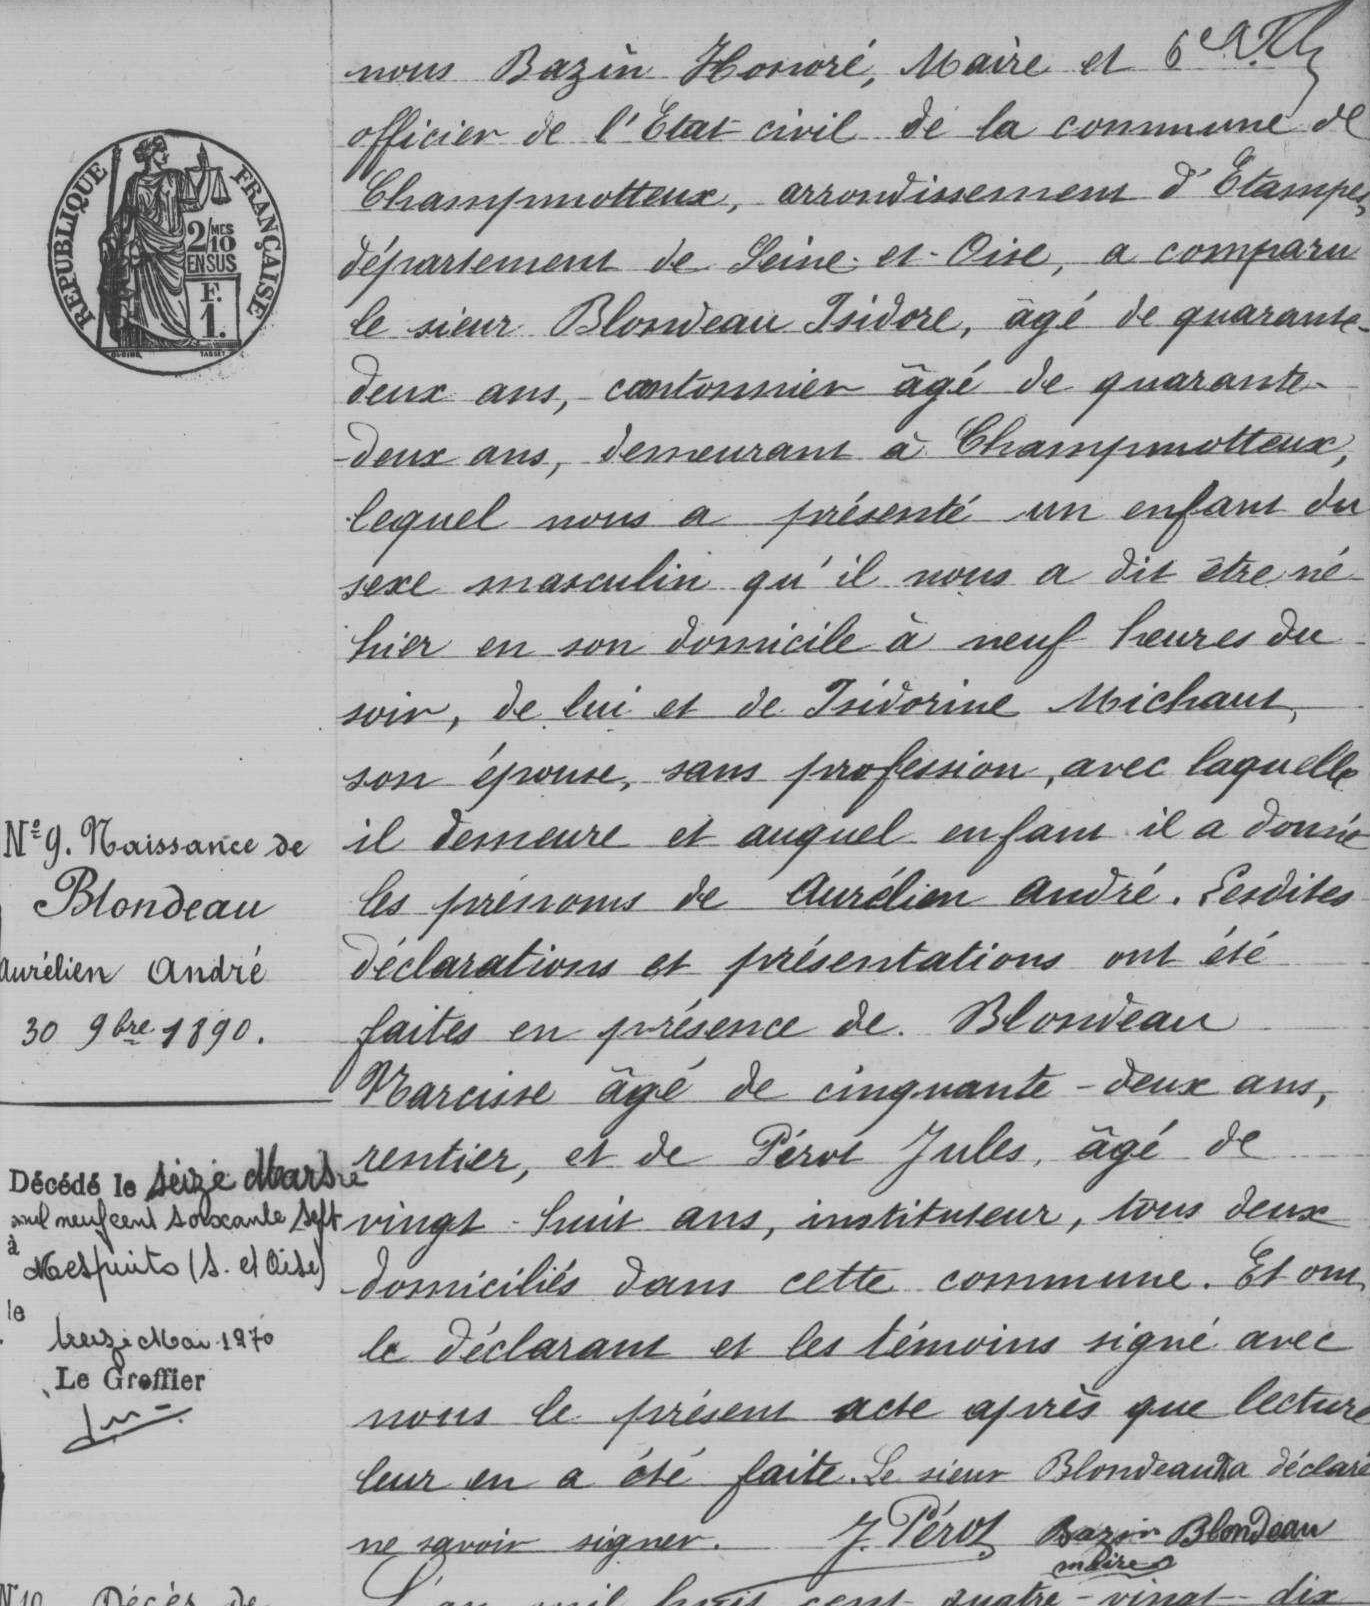 nous Bazin Honoré, Maire et
officier de l'Etat civil de la commune de
Champmotteux, arrondissement d'Etampes,
département de Seine-et-Oise, a comparu
le sieur Blondeau Isidore, âgé de quarante-
deux ans, cantonnier âgé de quarante-
deux ans, demeurant à Champmotteux,
lequel nous a présenté un enfant du
sexe masculin qu'il nous a dit être né
hier en son domicile à neuf heures du
soir, de lui et de Isidorine Michaut,
son épouse, sans profession, avec laquelle
il demeure et auquel enfant il a donné
les prénoms de Aurélien André. Lesdites
déclarations et présentations ont été
faites en présence de Blondeau
Narcisse âgé de cinquante-deux ans,
rentier, et de Pérot Jules, âgé de
vingt-huit ans, instituteur, tous deux
domiciliés dans cette commune. Et ont
le déclarant et les témoins signé avec
nous le présent acte après que lecture
leur en a été faite. Le sieur Blondeau a déclaré
ne savoir signer. J. Pérot Bazin Blondeau
maire
L'an mil huit cent quatre-vingt-dix
REPUBLIQUE FRANÇAISE
2/MES
10
EN SUS
F.
1.
OUDINE TASSET
N° 9. Naissance de
Blondeau
Aurélien André
30 9bre 1890.
Décédé le seize Mars
mil neuf cent soixante sept
à Mespuits (S. et Oise)
le
treize Mai 1970
Le Greffier
N° 10 Décès de